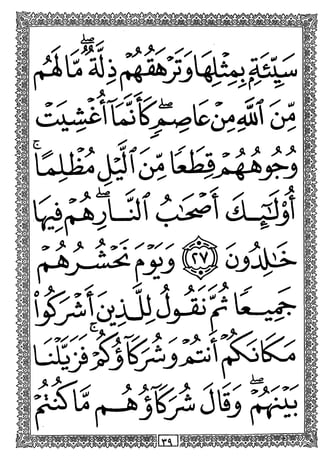 سَيِّئَةٍ بِمِثْلِهَا وَتَرْهَقُهُمْ ذِلَّةٌ ۖ مَّا لَهُم
مِّنَ ٱللَّهِ مِنْ عَاصِمٍ ۖ كَأَنَّمَآ أُغْشِيَتْ
وُجُوهُهُمْ قِطَعًا مِّنَ ٱلَّيْلِ مُظْلِمًا ۚ
أُو۟لَـٰٓئِكَ أَصْحَـٰبُ ٱلنَّارِ ۖ هُمْ فِيهَا
خَـٰلِدُونَ ﴿٢٧﴾ وَيَوْمَ نَحْشُرُهُمْ
جَمِيعًا ثُمَّ نَقُولُ لِلَّذِينَ أَشْرَكُوا۟
مَكَانَكُمْ أَنتُمْ وَشُرَكَآؤُكُمْ ۚ فَزَيَّلْنَا
بَيْنَهُمْ ۖ وَقَالَ شُرَكَآؤُهُم مَّا كُنتُمْ
٣٩